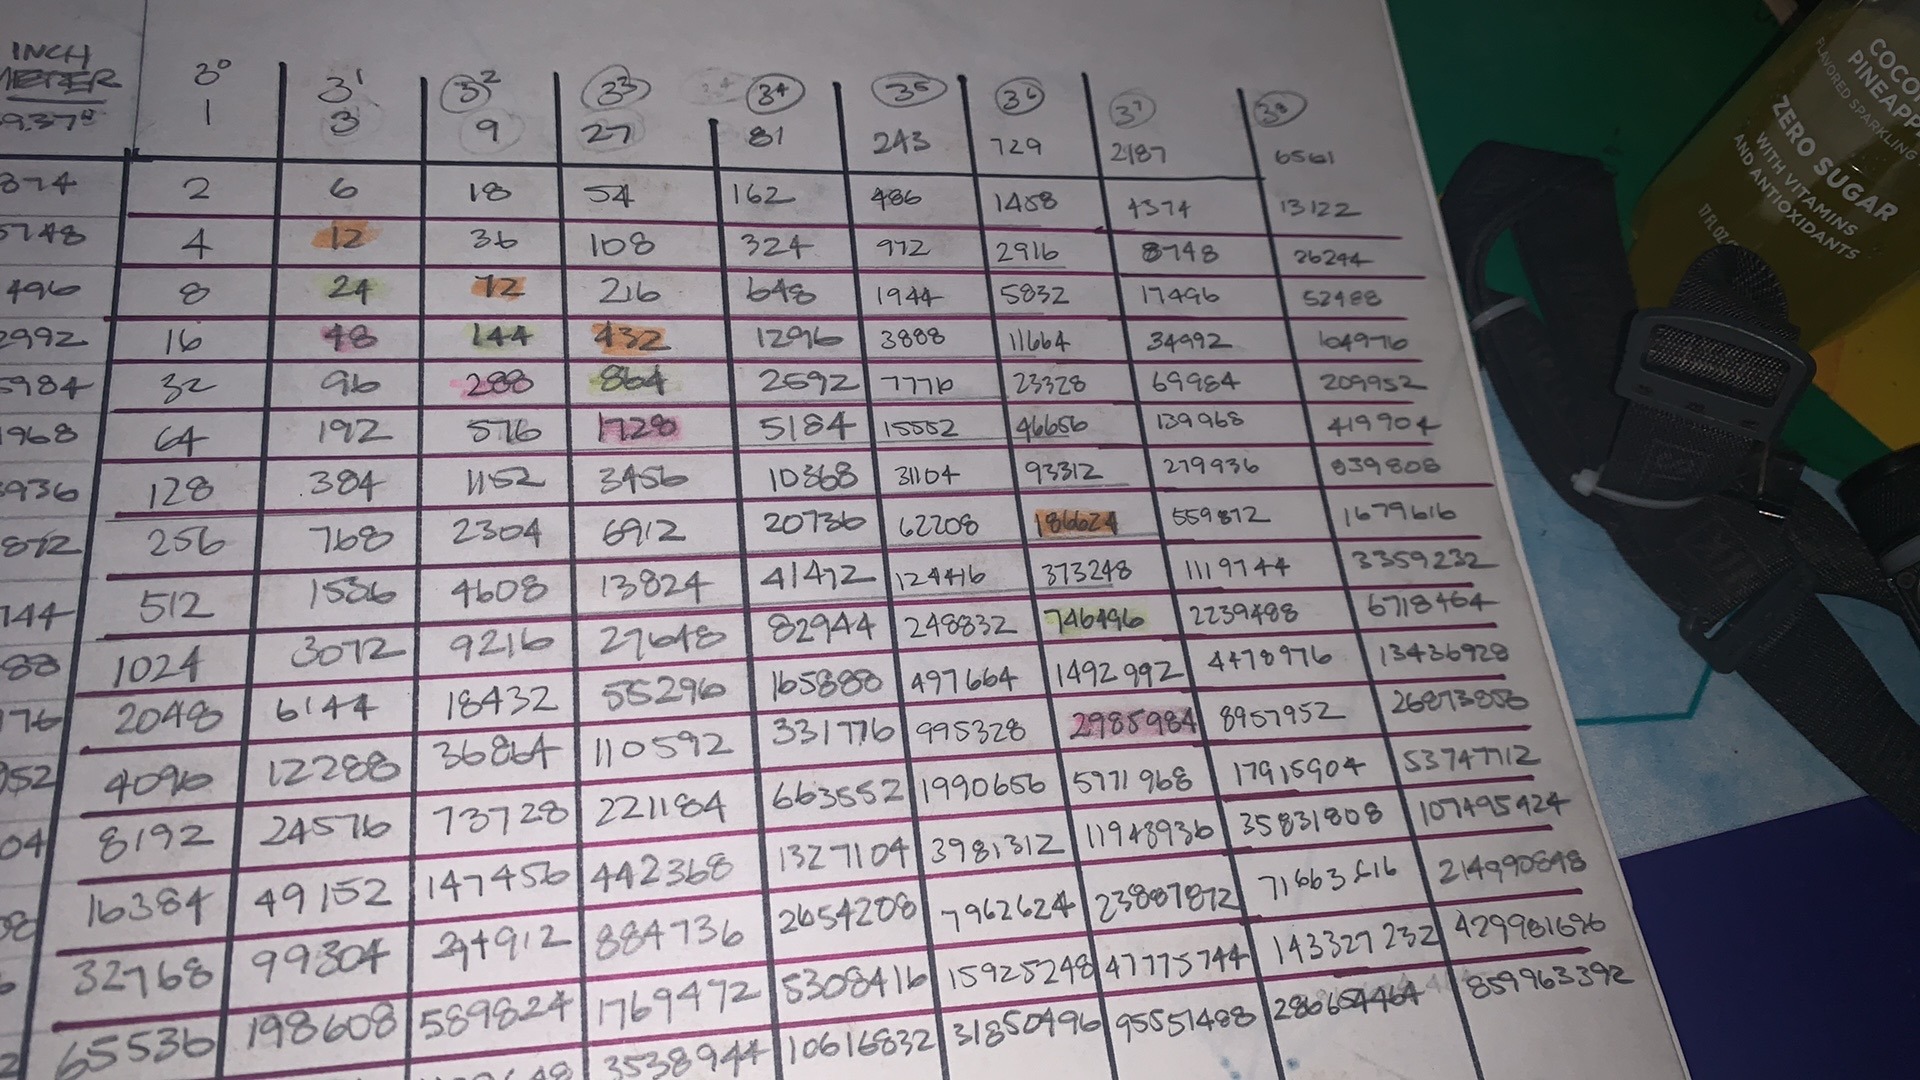 INCH
METER
3⁰ 3¹ 3² 3³ 3⁴ 3⁵ 3⁶ 3⁷ 3⁸
9.37" 1 3 9 27 81 243 729 2187 6561
874 2 6 18 54 162 486 1458 4374 13122
5748 4 12 36 108 324 972 2916 8748 26244
496 8 24 72 216 648 1944 5832 17496 52488
2992 16 48 144 432 1296 3888 11664 34992 104976
5984 32 96 288 864 2592 7776 23328 69984 209952
1968 64 192 576 1728 5184 15552 46656 139968 419904
3936 128 384 1152 3456 10368 31104 93312 279936 839808
872 256 768 2304 6912 20736 62208 186624 559872 1679616
744 512 1536 4608 13824 41472 124416 373248 1119744 3359232
88 1024 3072 9216 27648 82944 248832 746496 2239488 6718464
176 2048 6144 18432 55296 165888 497664 1492992 4478976 13436928
952 4096 12288 36864 110592 331776 995328 2985984 8957952 26873856
04 8192 24576 73728 221184 663552 1990656 5971968 17915904 53747712
08 16384 49152 147456 442368 1327104 3981312 11943936 35831808 107495424
32768 99304 294912 884736 2654208 7962624 23887872 71663616 214990848
65536 198608 589824 1769472 5308416 15925248 47775744 143327232 429981696
3538944 10616832 31850496 95551488 286654464 859963392
COCO
PINEAPP
FLAVORED SPARKLING
ZERO SUGAR
WITH VITAMINS
AND ANTIOXIDANTS
17 FL OZ